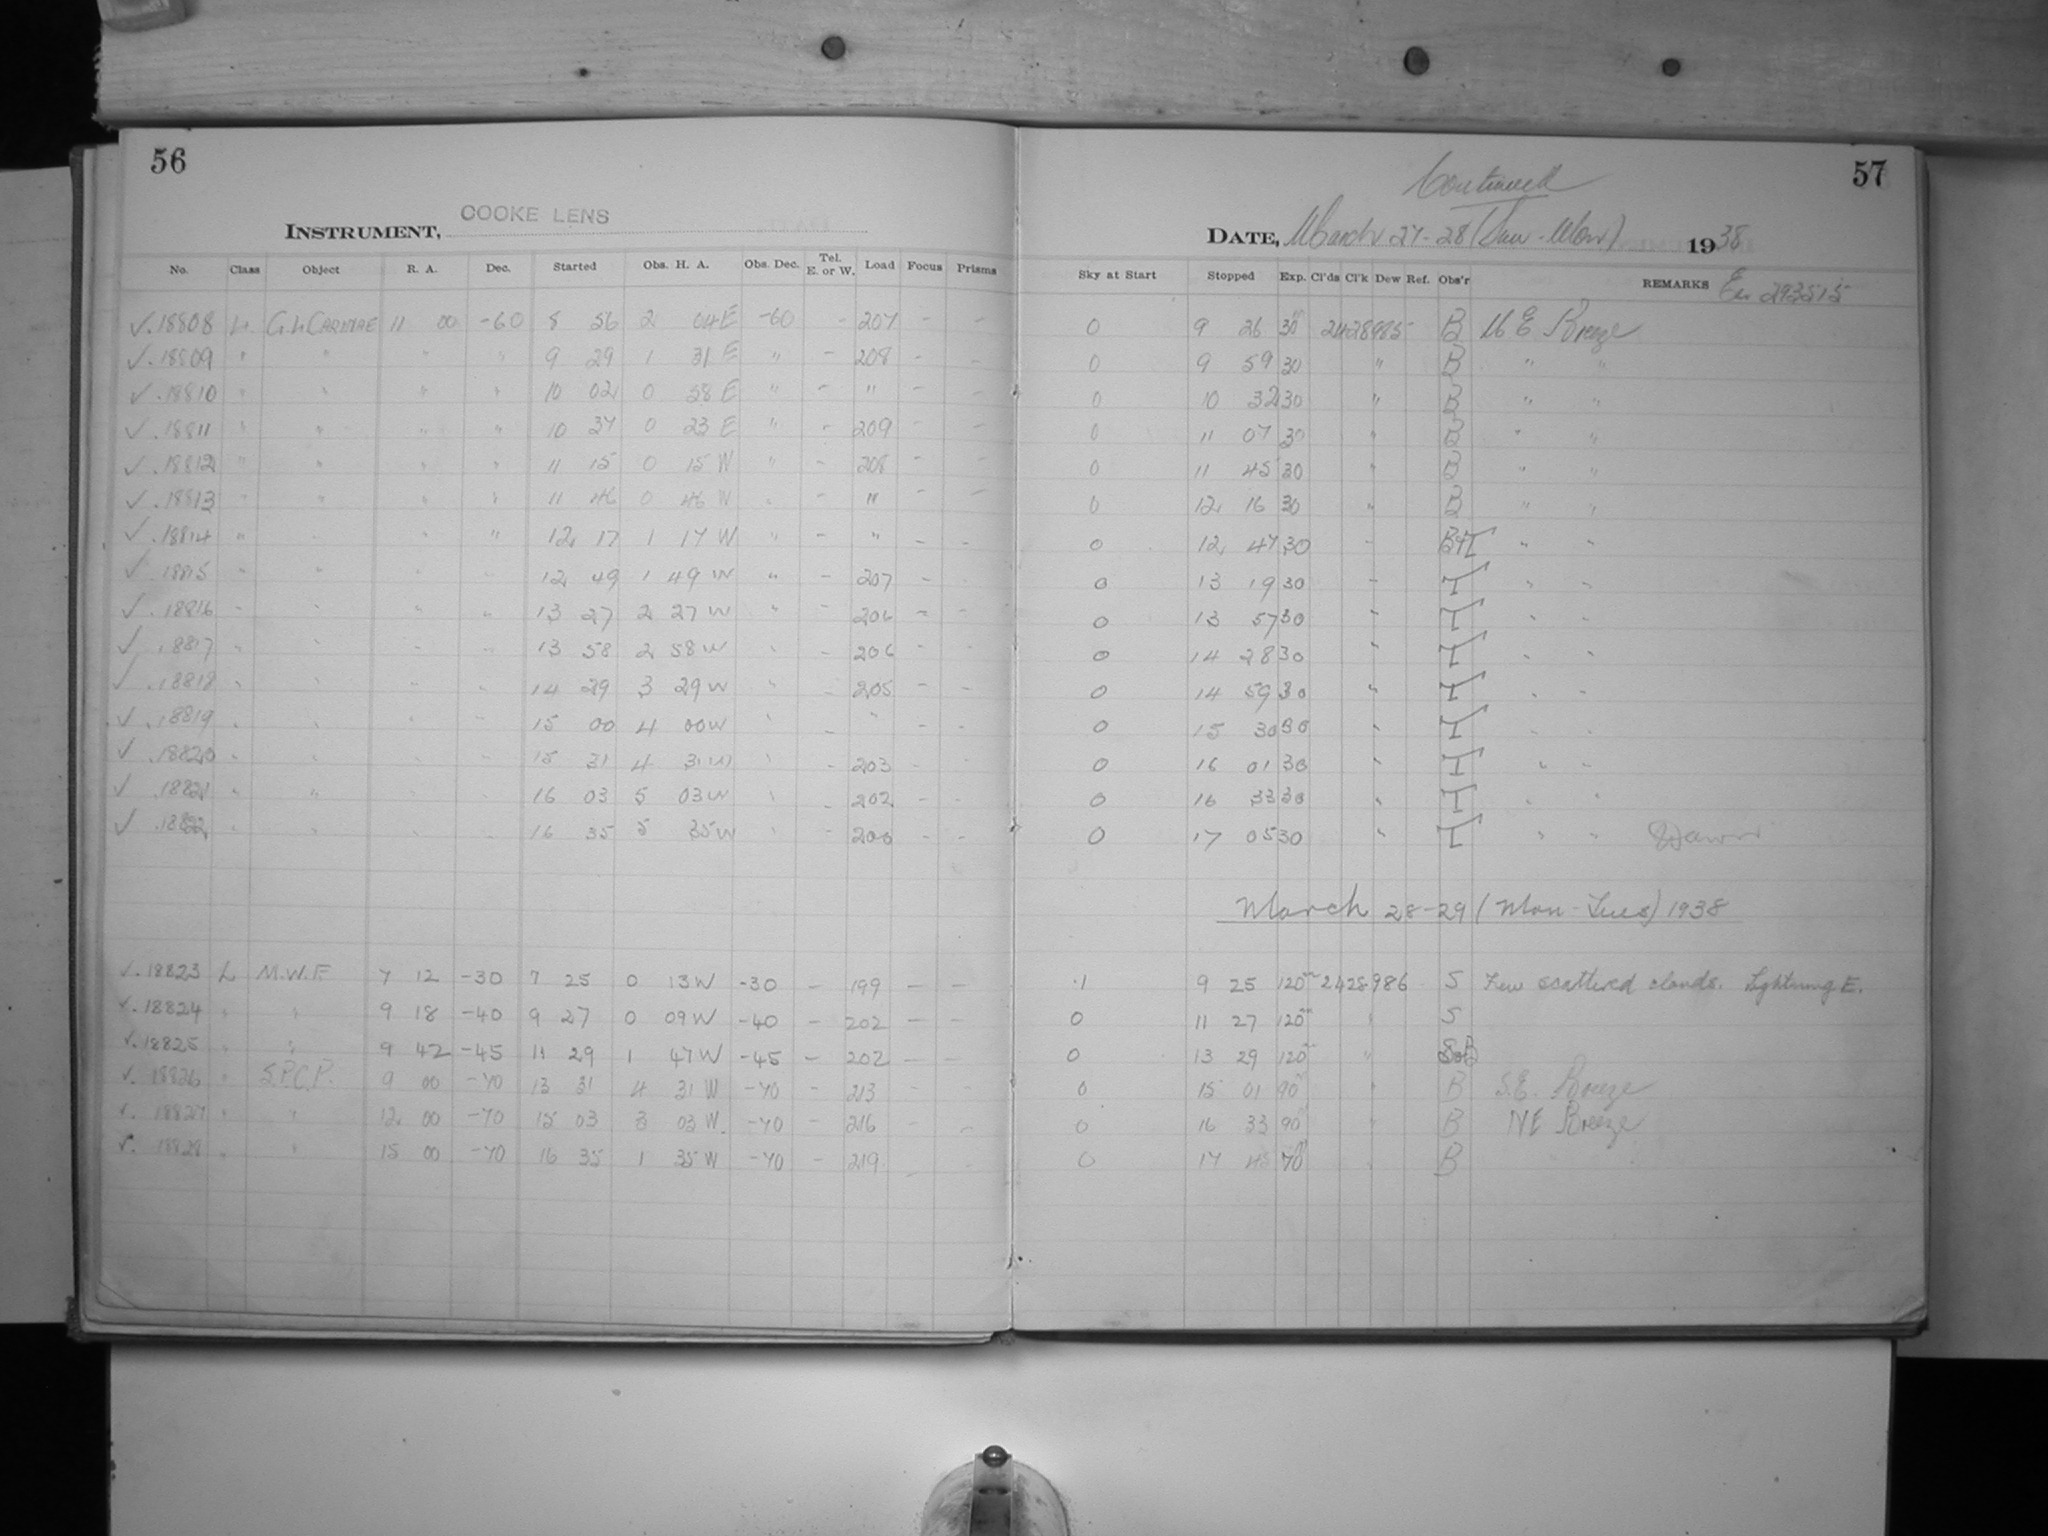 56
COOKE LENS
INSTRUMENT,
No. Class Object R. A. Dec. Started Obs. H. A. Obs. Dec. Tel. E. or W. Load Focus Prisms
✓.18808 L G.L CARINAE 11 00 -60 8 56 2 04 E -60 - 207 - -
✓.18809 " " " " 9 29 1 31 E " - 208 - -
✓.18810 " " " " 10 02 0 58 E " - " - -
✓.18811 " " " " 10 37 0 23 E " - 209 - -
✓.18812 " " " " 11 15 0 15 W " - 208 - -
✓.18813 " " " " 11 46 0 46 W " - " - -
✓.18814 " " " " 12 17 1 17 W " - " - -
✓.18815 " " " " 12 49 1 49 W " - 207 - -
✓.18816 " " " " 13 27 2 27 W " - 206 - -
✓.18817 " " " " 13 58 2 58 W " - 206 - -
✓.18818 " " " " 14 29 3 29 W " - 205 - -
✓.18819 " " " " 15 00 4 00 W " - " - -
✓.18820 " " " " 15 31 4 31 W " - 203 - -
✓.18821 " " " " 16 03 5 03 W " - 202 - -
✓.18822 " " " " 16 35 5 35 W " - 200 - -
✓.18823 L M.W.F 7 12 -30 7 25 0 13 W -30 - 199 - -
✓.18824 " " 9 18 -40 9 27 0 09 W -40 - 202 - -
✓.18825 " " 9 42 -45 11 29 1 47 W -45 - 202 - -
✓.18826 " S.P.C.P. 9 00 -70 13 31 4 31 W -70 - 213 - -
✓.18827 " " 12 00 -70 15 03 3 03 W. -70 - 216 - -
✓.18828 " " 15 00 -70 16 35 1 35 W -70 - 219 - -
57
Continued
DATE, March 27-28 (Sun-Mon) 1938
Sky at Start Stopped Exp. Cl'ds Cl'k Dew Ref. Obs'r REMARKS
0 9 26 30 2428985 B N E Breeze
0 9 59 30 " B " "
0 10 32 30 " B " "
0 11 07 30 " B " "
0 11 45 30 " B " "
0 12 16 30 " B " "
0 12 47 30 " B+T " "
0 13 19 30 " T " "
0 13 57 30 " T " "
0 14 28 30 " T " "
0 14 59 30 " T " "
0 15 30 30 " T " "
0 16 01 30 " T " "
0 16 33 30 " T " "
0 17 05 30 " T " " Dawn
March 28-29 (Mon-Tues) 1938
.1 9 25 120 2428986 S Few scattered clouds. Lightning E.
0 11 27 120 " S
0 13 29 120 "
0 15 01 90 " B S.E. Breeze
0 16 33 90 " B NE Breeze
0 17 45 70 " B